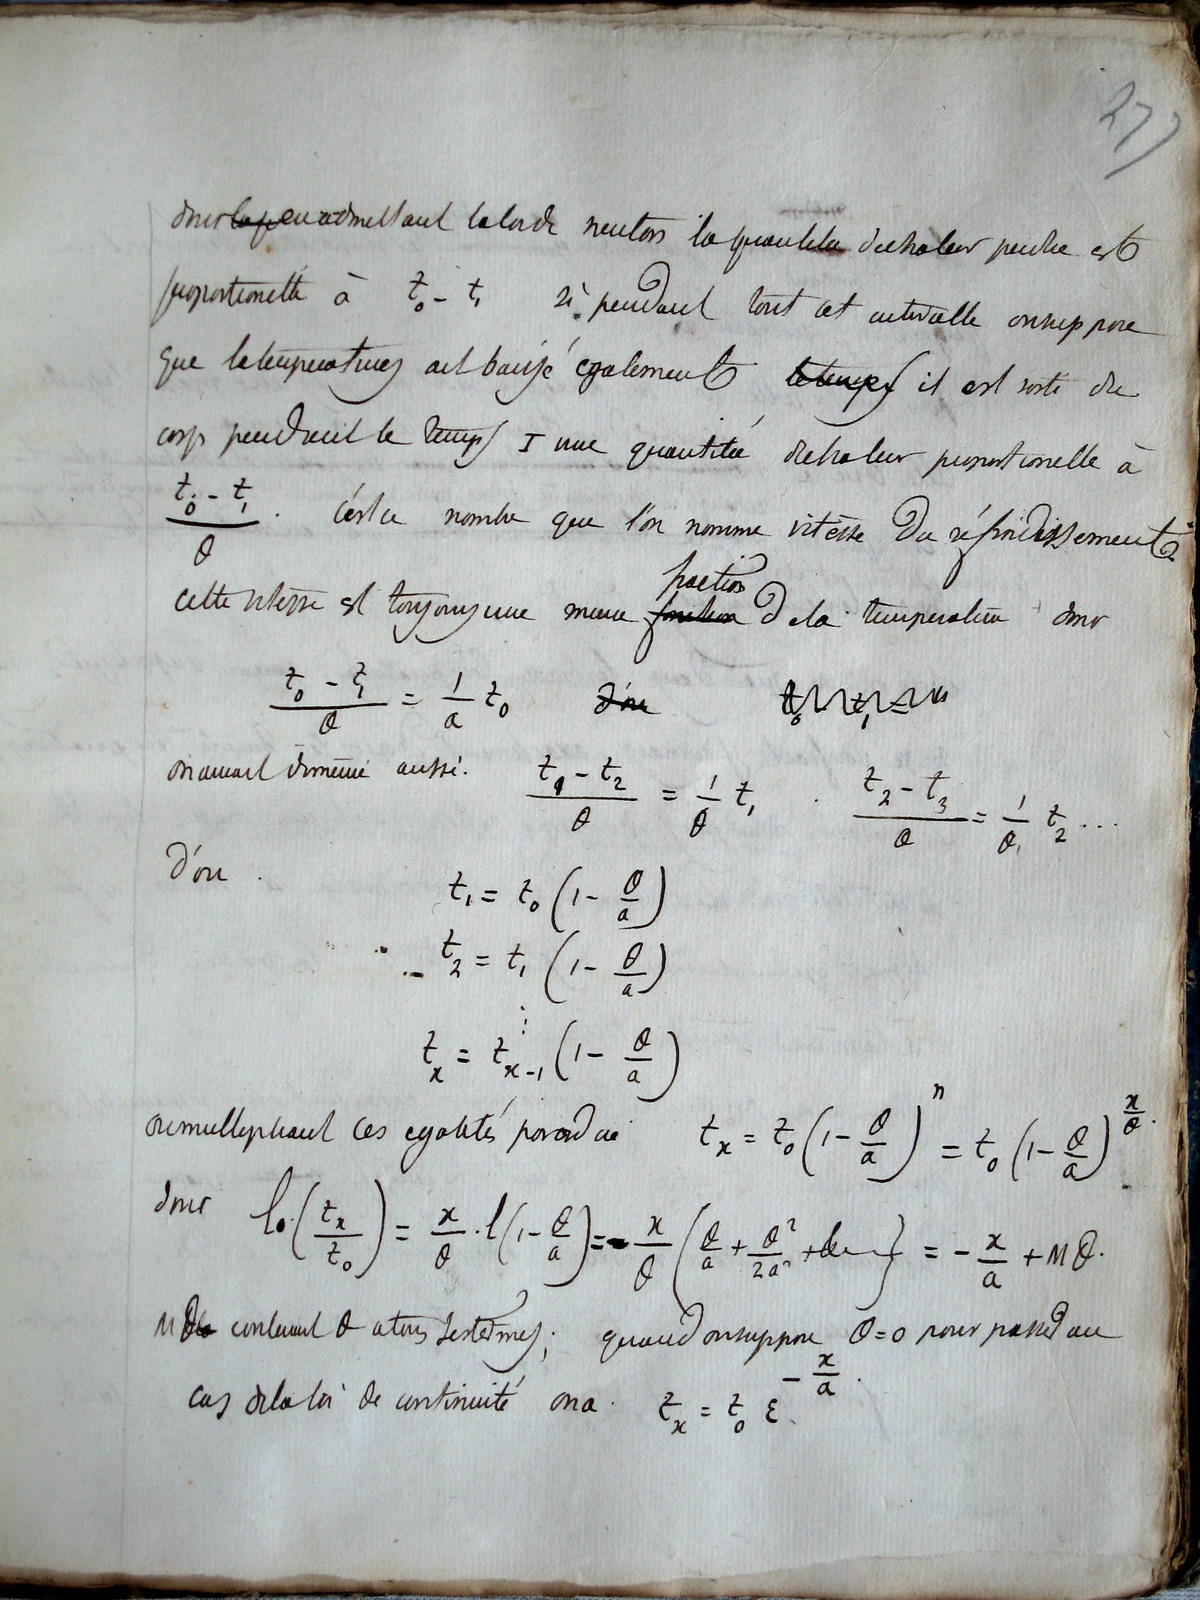 27
donc en admettant la loi de neuton la quantité de chaleur perdue est
proportionelle à t₀ - t₁ si pendant tout cet intervalle on suppose
que la temperatures ait baissé egalement le temps il est sorti du
corps pendant le temps I une quantité de chaleur proportionelle à
(t₀ - t₁)/θ . C'est ce nombre que l'on nomme vitesse du réfroidissement
cette vitesse est toujours une meme fonction fraction de la temperature donc
(t₀ - t₁)/θ = 1/a t₀ d'ou t₀ - t₁ =
on aurait de meme aussi. (t₁ - t₂)/θ = 1/θ t₁ . (t₂ - t₃)/θ = 1/θ t₂ ...
d'ou .
t₁ = t₀ (1 - θ/a)
t₂ = t₁ (1 - θ/a)
⋮
tₓ = tₓ₋₁ (1 - θ/a)
multipliant ces egalités tₓ = t₀ (1 - θ/a)ⁿ = t₀ (1 - θ/a)^(x/θ).
donc l.(tₓ/t₀) = x/θ . l(1 - θ/a) = - x/θ (θ/a + θ²/2a² + &c) = - x/a + Mθ.
Mθ contenant θ a tous ses termes; quand on suppose θ=0 pour passer au
cas de la loi de continuité on a . tₓ = t₀ ε^(-x/a).